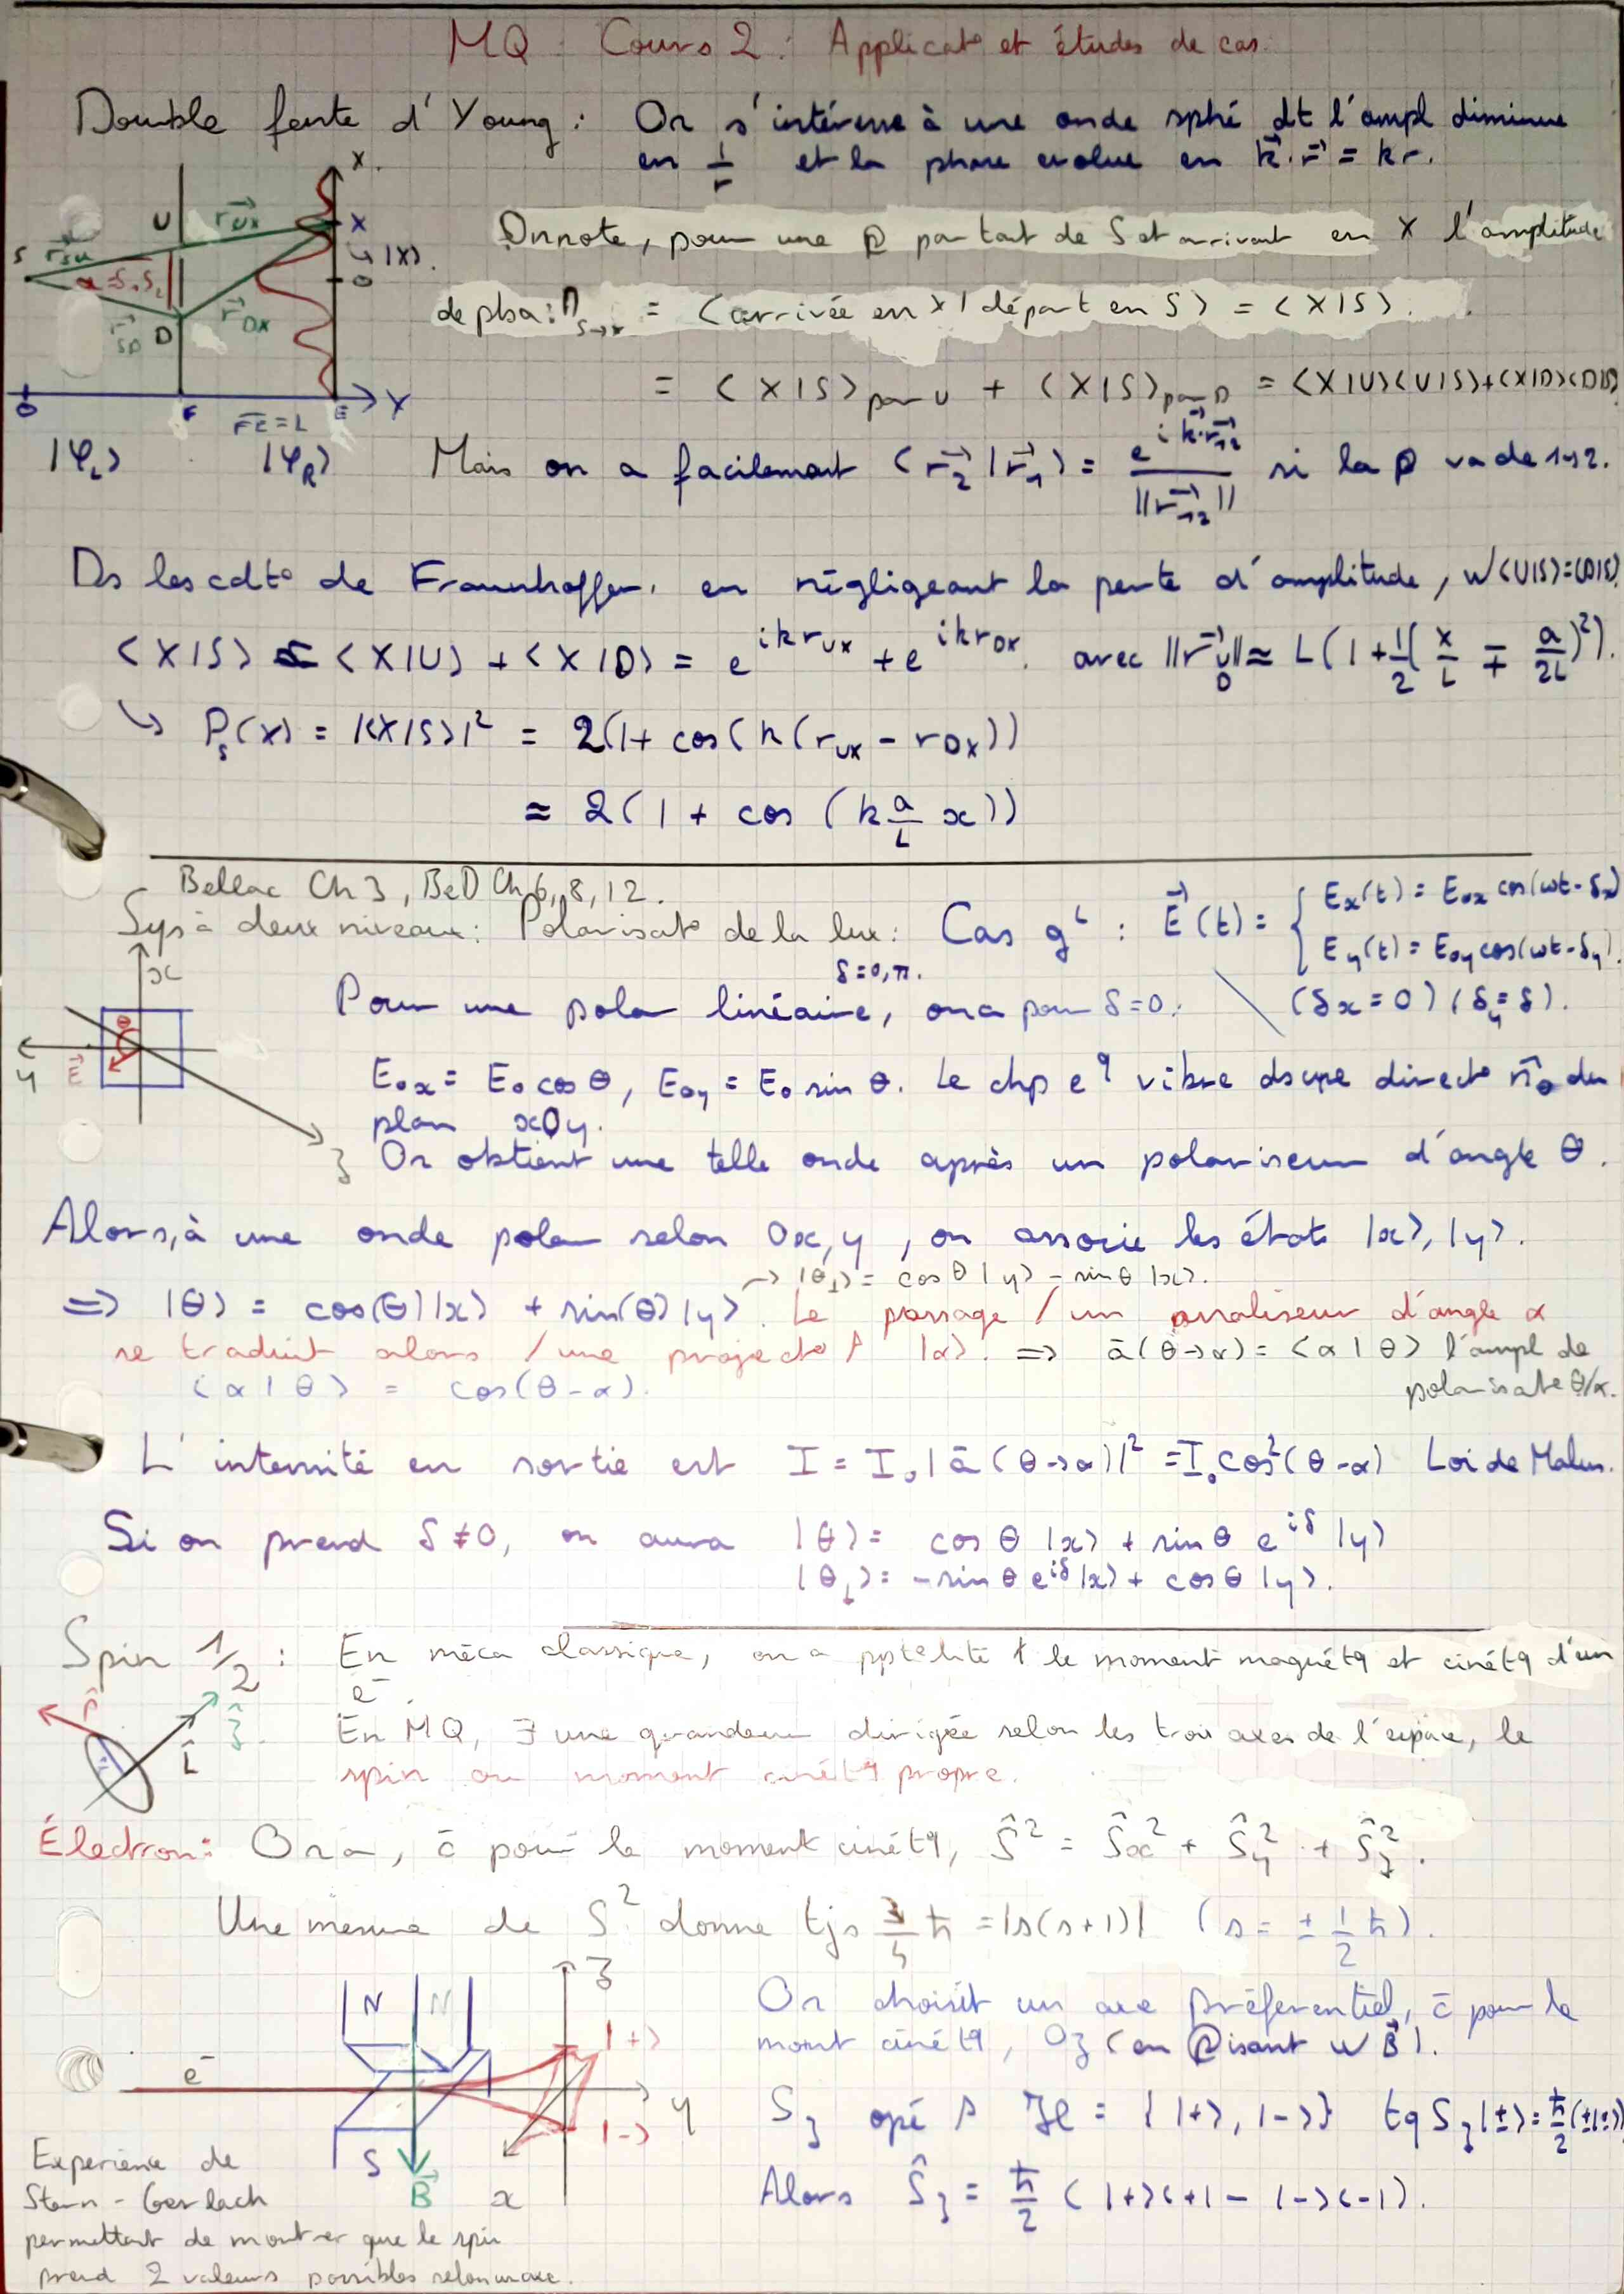 MQ - Cours 2 : Applicat° et études de cas.
Double fente d'Young : On s'intéresse à une onde sphé dt l'ampl diminue
en 1/r et la phase evolue en k⃗·r⃗ = kr.
X
U
r⃗_UX
X
↳ |X⟩.
S
r⃗_SU
a = S₁S₂
O
r⃗_SD
D
r⃗_DX
O
F
E
Y
FE = L
On note, pour une p partant de S et arrivant en X l'amplitude
de pba : A_S→X = ⟨arrivée en X | départ en S⟩ = ⟨X|S⟩.
= ⟨X|S⟩_par U + ⟨X|S⟩_par D = ⟨X|U⟩⟨U|S⟩+⟨X|D⟩⟨D|S⟩
|φ_L⟩ |φ_R⟩ Mais on a facilement ⟨r⃗₂|r⃗₁⟩ = e^{i k⃗·r⃗₁₂} / ||r⃗₁₂|| si la p va de 1→2.
Ds les cdt° de Fraunhoffer, en négligeant la perte d'amplitude, w ⟨U|S⟩=⟨D|S⟩,
⟨X|S⟩ ∝ ⟨X|U⟩ + ⟨X|D⟩ = e^{ikr_UX} + e^{ikr_DX}. avec ||r⃗_U/D|| ≈ L(1+1/2(x/L ∓ a/2L)²).
↳ P_S(X) = |⟨X|S⟩|² = 2(1+ cos(k(r_UX − r_DX))
≈ 2(1 + cos (k a/L x))
Bellac Ch 3, BeD Ch 6, 8, 12.
Sys à deux niveaux : Polarisat° de la lux : Cas g^L : E⃗(t) = { E_x(t) = E_0x cos(ωt-δ_x)
E_y(t) = E_0y cos(ωt-δ_y).
δ=0,π.
Pour une polar linéaire, on a pour δ=0 : (δ_x = 0) (δ_y = δ).
x
θ
y
E⃗
z
E_0x = E_0 cos θ, E_0y = E_0 sin θ. Le chp e^q vibre ds une direct° n⃗_θ du
plan xOy.
On obtient une telle onde après un polariseur d'angle θ.
Alors, à une onde polar selon Ox,y, on associe les états |x⟩, |y⟩.
→ |θ⊥⟩ = cos θ |y⟩ − sin θ |x⟩.
⇒ |θ⟩ = cos(θ)|x⟩ + sin(θ)|y⟩. Le passage / un analiseur d'angle α
se traduit alors / une project° s/ |α⟩. ⇒ ā(θ→α) = ⟨α|θ⟩ l'ampl de
⟨α|θ⟩ = cos(θ-α). polarisat° θ/α.
L'intensité en sortie est I = I₀|ā(θ→α)|² = I₀cos²(θ-α) Loi de Malus.
Si on prend δ ≠ 0, on aura |θ⟩ = cos θ |x⟩ + sin θ e^{iδ} |y⟩
|θ⊥⟩ = −sin θ e^{iδ}|x⟩ + cos θ |y⟩.
Spin 1/2 : En méca classique, on a ppt°lité le moment magnét^q et cinét^q d'un
e⁻.
L⃗
En MQ, ∃ une grandeur dirigée selon les trois axes de l'espace, le
spin ou moment cinét^q propre.
Électron : On a, c̄ pour le moment cinét^q, Ŝ² = Ŝx² + Ŝy² + Ŝz².
Une mesure de S² donne tjs 3/4 ħ = |s(s+1)| (s = ± 1/2 ħ).
N N
z
|+⟩
e⁻
y
|−⟩
S
B⃗
x
On choisit un axe préferentiel, c̄ pour le
momt cinét^q, Oz (en φisant w B⃗).
S_z opé s/ ℋ = {|+⟩, |−⟩} tq S_z|±⟩ = ħ/2 (±|±⟩)
Alors Ŝ_z = ħ/2 (|+⟩⟨+| − |−⟩⟨−|).
Experience de
Stern - Gerlach
permettant de montrer que le spin
prend 2 valeurs possibles selon un axe.